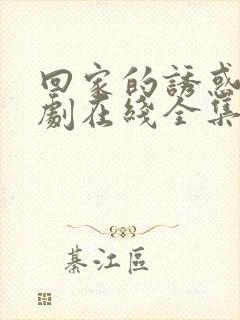 回家的誘惑
劇在綫全集
綦江區